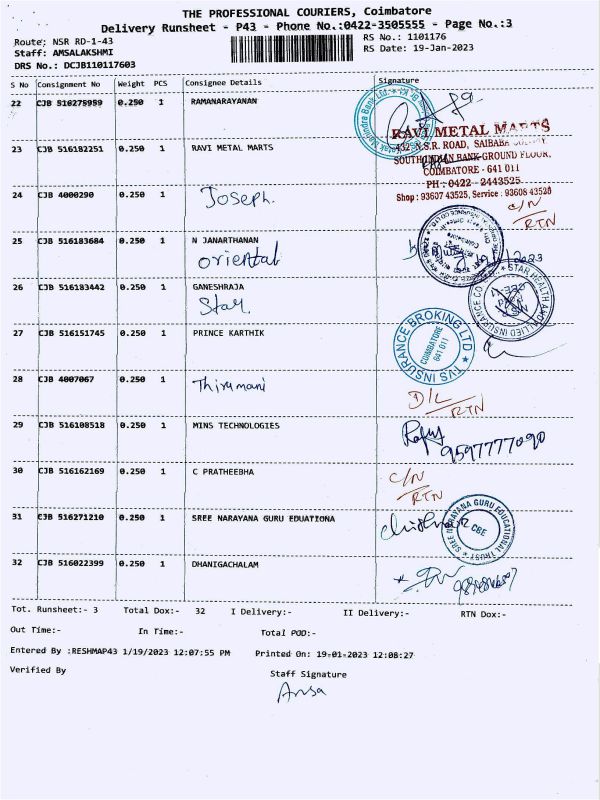 THE PROFESSIONAL COURIERS, Coimbatore
Delivery Runsheet - P43 - Phone No.:0422-3505555 - Page No.:3
Route: NSR RD-1-43
RS No.: 1101176
Staff: AMSALAKSHMI
RS Date: 19-Jan-2023
DRS No.: DCJB110117603
S No Consignment No Weight PCS Consignee Details Signature
22 CJB 516275959 0.250 1 RAMANARAYANAN
23 CJB 516182251 0.250 1 RAVI METAL MARTS
RAVI METAL MARTS
432 N.S.R. ROAD, SAIBABA
SOUTH INDIAN BANK-GROUND FLOOR,
COIMBATORE - 641 011
PH : 0422 - 2443525
Shop : 93607 43525, Service : 93608 43520
24 CJB 4000290 0.250 1 Joseph.
C/N
RTN
25 CJB 516183684 0.250 1 N JANARTHANAN
oriental
26 CJB 516183442 0.250 1 GANESHRAJA
Star
STAR HEALTH AND ALLIED INSURANCE CO
27 CJB 516151745 0.250 1 PRINCE KARTHIK
TVS INSURANCE BROKING LTD
COIMBATORE
641 011
28 CJB 4007067 0.250 1 Thirumani
D/L
RTN
29 CJB 516108518 0.250 1 MINS TECHNOLOGIES
9597777090
30 CJB 516162169 0.250 1 C PRATHEEBHA
C/N
RTN
31 CJB 516271210 0.250 1 SREE NARAYANA GURU EDUATIONA
SREE NARAYANA GURU EDUCATIONAL TRUST
CBE
32 CJB 516022399 0.250 1 DHANIGACHALAM
Tot. Runsheet:- 3 Total Dox:- 32 I Delivery:- II Delivery:- RTN Dox:-
Out Time:- In Time:- Total POD:-
Entered By :RESHMAP43 1/19/2023 12:07:55 PM Printed On: 19-01-2023 12:08:27
Verified By
Staff Signature
Amsa